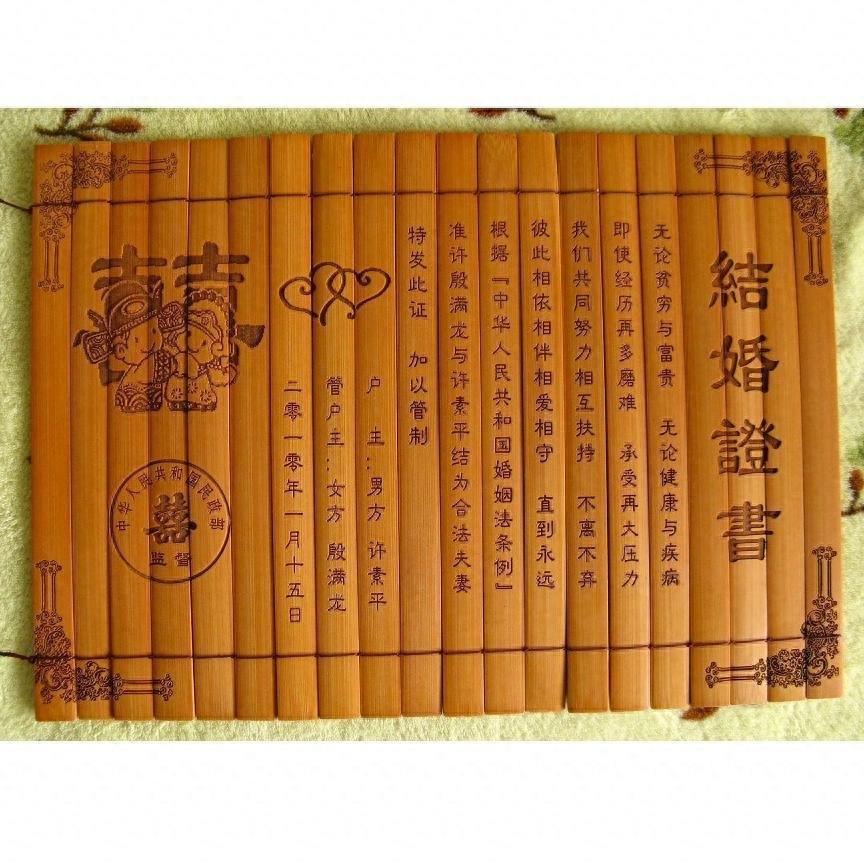 結婚證書
无论贫穷与富贵 无论健康与疾病
即使经历再多磨难 承受再大压力
我们共同努力相互扶持 不离不弃
彼此相依相伴相爱相守 直到永远
根据『中华人民共和国婚姻法条例』
准许殷满龙与许素平结为合法夫妻
特发此证 加以管制
户 主:男方 许素平
管户主:女方 殷满龙
二零一零年一月十五日
囍
中华人民共和国民政部
囍
监督